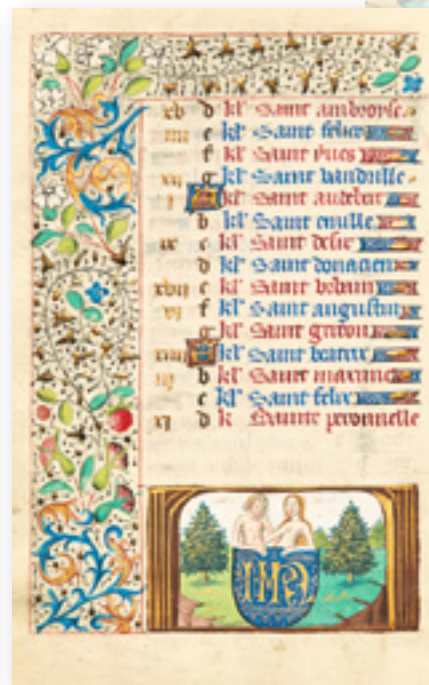 xv d kl' Saint ambroyse
iiii e kl' Saint felier
f kl' Saint yues
xij g kl' Saint vandrille
j A kl' Saint
b kl' Saint emille
ix c kl' Saint desir
d kl' Saint donacien
xvij e kl' Saint vrbain
vj f kl' Saint augustin
g kl' Saint
xiiij A kl' Saint
iij b kl' Saint
c kl' Saint felix
xj d k Sainte peronnelle